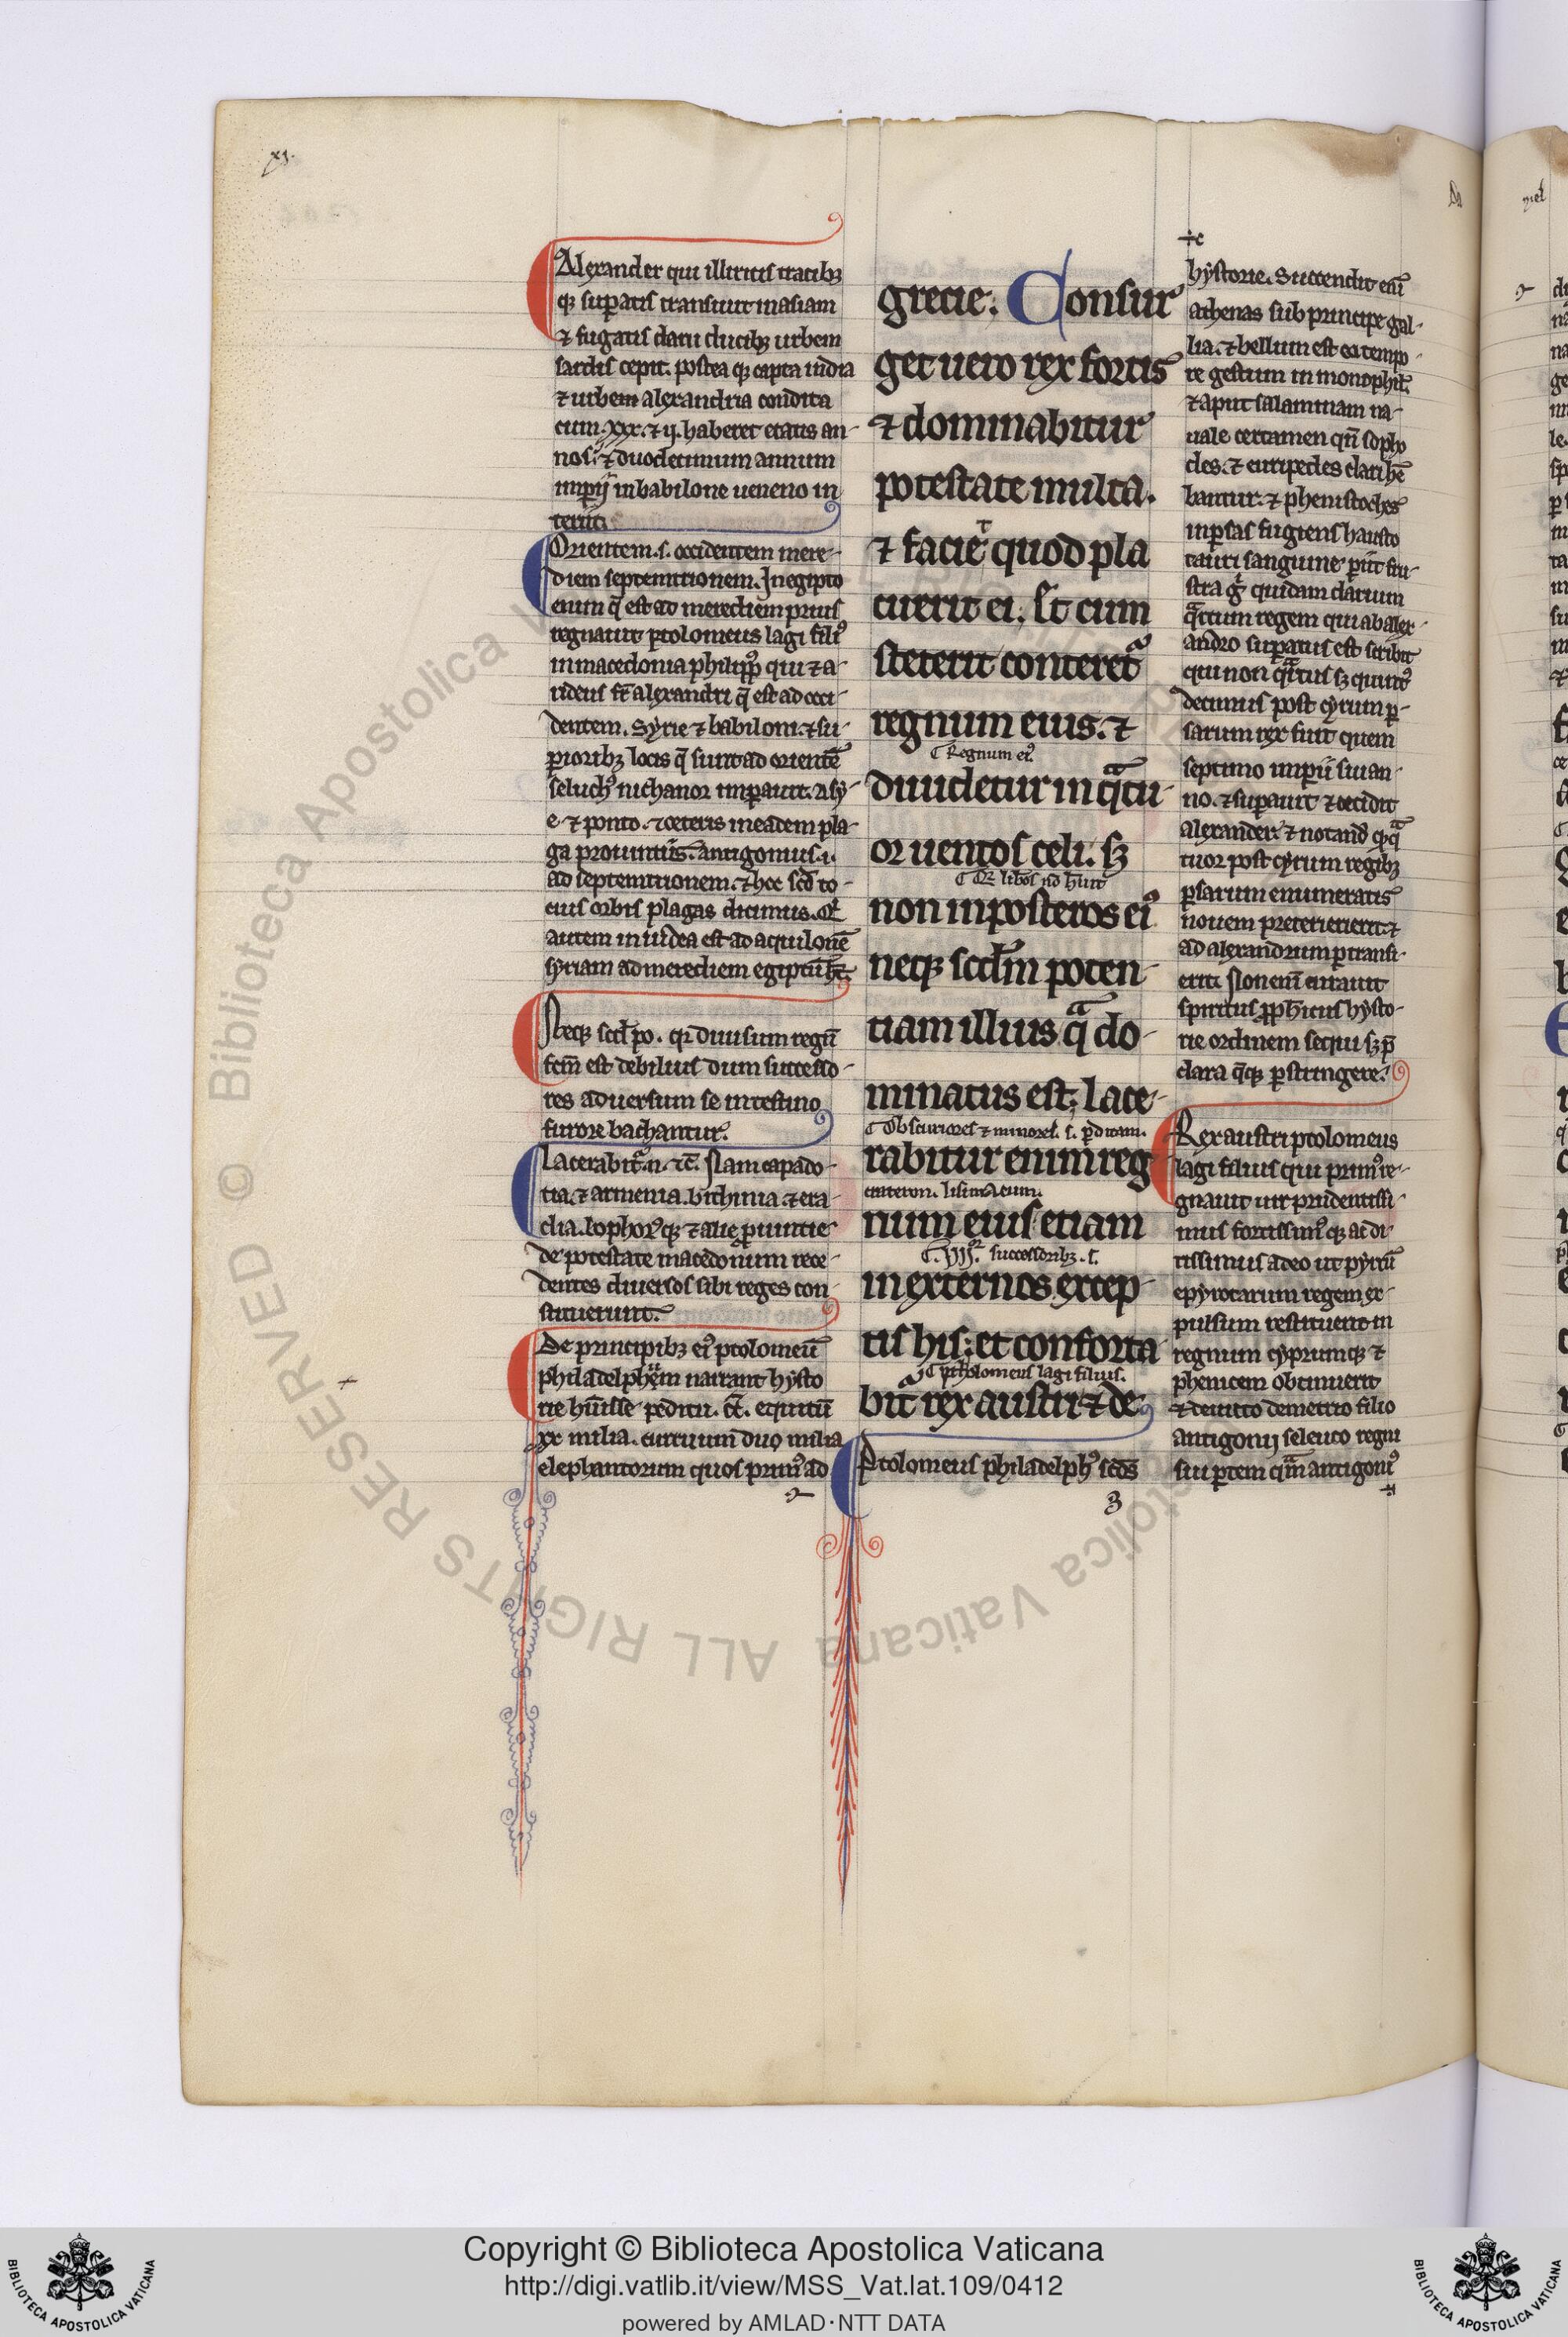 xj.
Alexander qui illiriciis tracibꝫ
qꝫ supatis transiuit in asiam
⁊ fugatis darii ducibꝫ urbem
sardis cepit. postea qꝫ capta india
⁊ urbem alexandria condita
cum xxx. ⁊ ij. haberet etatis an-
nos. ⁊ duodecimum annum
imperij in babilone ueneno in
teriit.
Orientem .s. occidentem meri-
diem septemtrionem. In egipto
enim q̄ est ad meridiem prius
regnauit ptolomeus lagi filiꝰ
in macedonia philippꝰ qui ⁊ a-
rideus fr̄ alexandri q̄ est ad occi-
dentem. Syrie ⁊ babiloni. ⁊ su-
perioribꝫ locis q̄ sunt ad orientē
seluchꝰ nichanor imperauit. Asy-
e ⁊ ponto. ⁊ ceteris in eadem pla-
ga prouintiis. antigonus .i.
ad septemtrionem. ⁊ hec scd̄ to-
cius orbis plagas dicimus. Qi
autem in iudea est ad aquilonē
syriam ad meridiem egiptū hꝫ.
Neqꝫ scd̄ po. qꝛ diuisum regnū
sem̄ est debilius dum successo-
res aduersum se intestino
furore bachantur.
Lacerabitᵃ .n. ⁊c̄. Nam capado-
tia. ⁊ armenia. bithinia ⁊ era-
clia. bosphorꝰqꝫ ⁊ alie prouintie
de potestate macedonum rece-
dentes diuersos sibi reges con-
stituerunt.
De principibꝫ eiꝰ ptolomeū
philadelphum narrant hysto
rie huisse peditū .cc̄. equitū
xx milia. curruum duo milia
elephantorum quos primꝰ ad
grecie. Consur
get uero rex fortis
⁊ dominabitur
potestate multa.
⁊ faciet quod pla
cuerit ei. ⁊ cum
steterit conteretᵃ
regnum eius. ⁊
Regnum eiꝰ.
diuidetur in qᵃtu-
or uentos celi. sꝫ
non in posteros eiꝰ
neqꝫ scd̄m poten-
tiam illius qᵃ do-
minatus est. Lace-
Obscuriores ⁊ minores .s. perdicam.
rabitur enim reg
num eius etiam
successoribꝫ .s.
in externos excep-
tis his. et conforta
ptholomeus lagi filius.
bit rex austri ⁊ de
Ptolomeus philadelphꝰ scd̄s
hystorie. Succendit eni
athenas sub principe gal-
lia. ⁊ bellum est eo tempo-
re gestum in monophil.
⁊ aput salaminam na-
uale certamen qn̄ sopho
cles. ⁊ euripedes clari hē
bantur. ⁊ phemistocles
in persas fugiens hausto
tauri sanguine periit fru-
stra gͥ quidam darium
qᵃrtum regem qui ab alex-
andro superatus est scribit
qui non qᵃrtus sꝫ quintꝰ
decimus post cyrum per-
sarum rex fuit quem
septimo imperii sui an-
no. ⁊ superauit ⁊ occidit
alexander. ⁊ notand̄ qꝫ qᵃ
tuor post cyrum regibꝫ
persarum enumeratis
nouem preterierit. ⁊
ad alexandrum transi-
erit. Non enī curauit
spiritus proph̄icus hysto-
rie ordinem sequi sꝫ p̄
clara qͥqꝫ perstringere.
Rex austri ptolomeus
lagi filius qui primꝰ re-
gnauit uir prudentissi-
mus fortissimꝰqꝫ ac di-
tissimus adeo ut pyrrū
epyrotarum regem ex-
pulsum restituerit in
regnum cyprumqꝫ ⁊
phenicem obtinuerit
⁊ deuicto demetrio filio
antigonij seleuco regni
sui partem qᵃm antigonꝰ
Copyright © Biblioteca Apostolica Vaticana
http://digi.vatlib.it/view/MSS_Vat.lat.109/0412
powered by AMLAD·NTT DATA
BIBLIOTECA APOSTOLICA VATICANA
BIBLIOTECA APOSTOLICA VATICANA